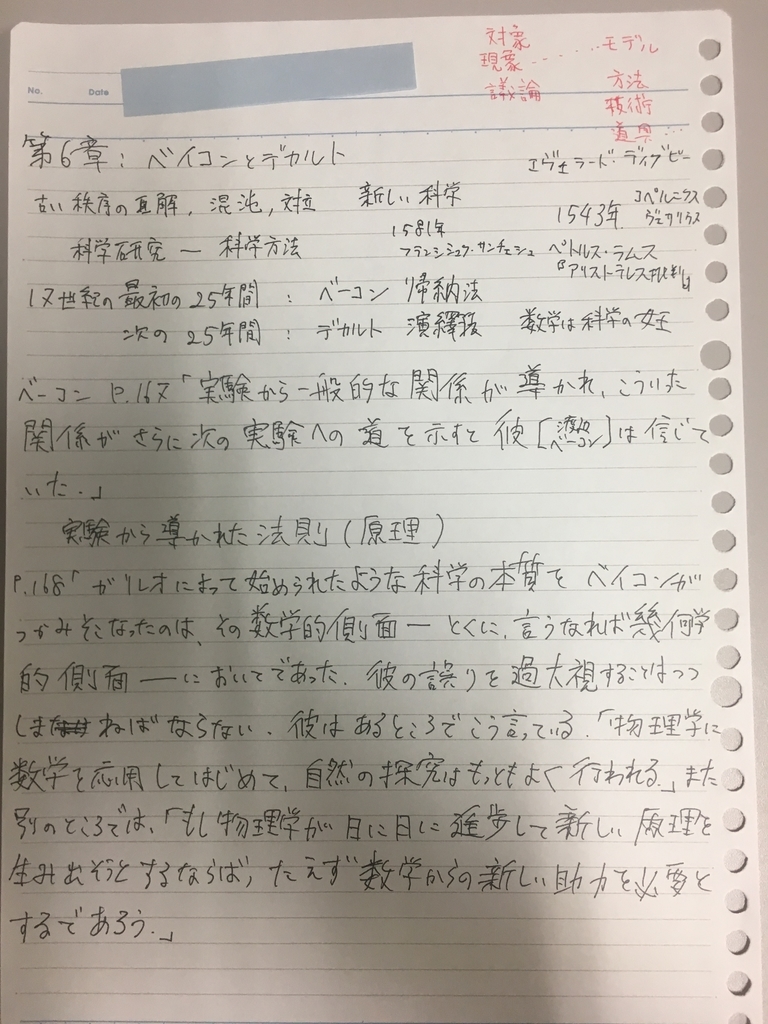 対象
現象 ・・・・・・・ モデル
議論 方法
技術
道具…
No. Date
第6章: ベイコンとデカルト エヴェラード・ディグビー
古い秩序の瓦解, 混沌, 対立 新しい科学 1543年 コペルニクス
ヴェサリウス
1581年
科学研究 ― 科学方法 フランシシュク・サンチェシュ ペトルス・ラムス
『アリストテレス批判』
17世紀の最初の25年間 : ベーコン 帰納法
次の25年間 : デカルト 演繹 数学は科学の女王
ベーコン P.167「実験から一般的な関係が導かれ, こういった
関係がさらに次の実験への道を示すと彼[ベーコン]は信じて
いた.」
実験から導かれた法則(原理)
P.168「ガリレオによって始められたような科学の本質をベイコンが
つかみそこなったのは, その数学的側面―とくに, 言うなれば幾何学
的側面―においてであった. 彼の誤りを過大視することはつつ
しまねばならない. 彼はあるところでこう言っている.「物理学に
数学を応用してはじめて, 自然の探究はもっともよく行われる.」また
別のところでは,「もし物理学が日に日に進歩して新しい原理を
生み出そうとするならば, たえず数学からの新しい助力を必要と
するであろう.」